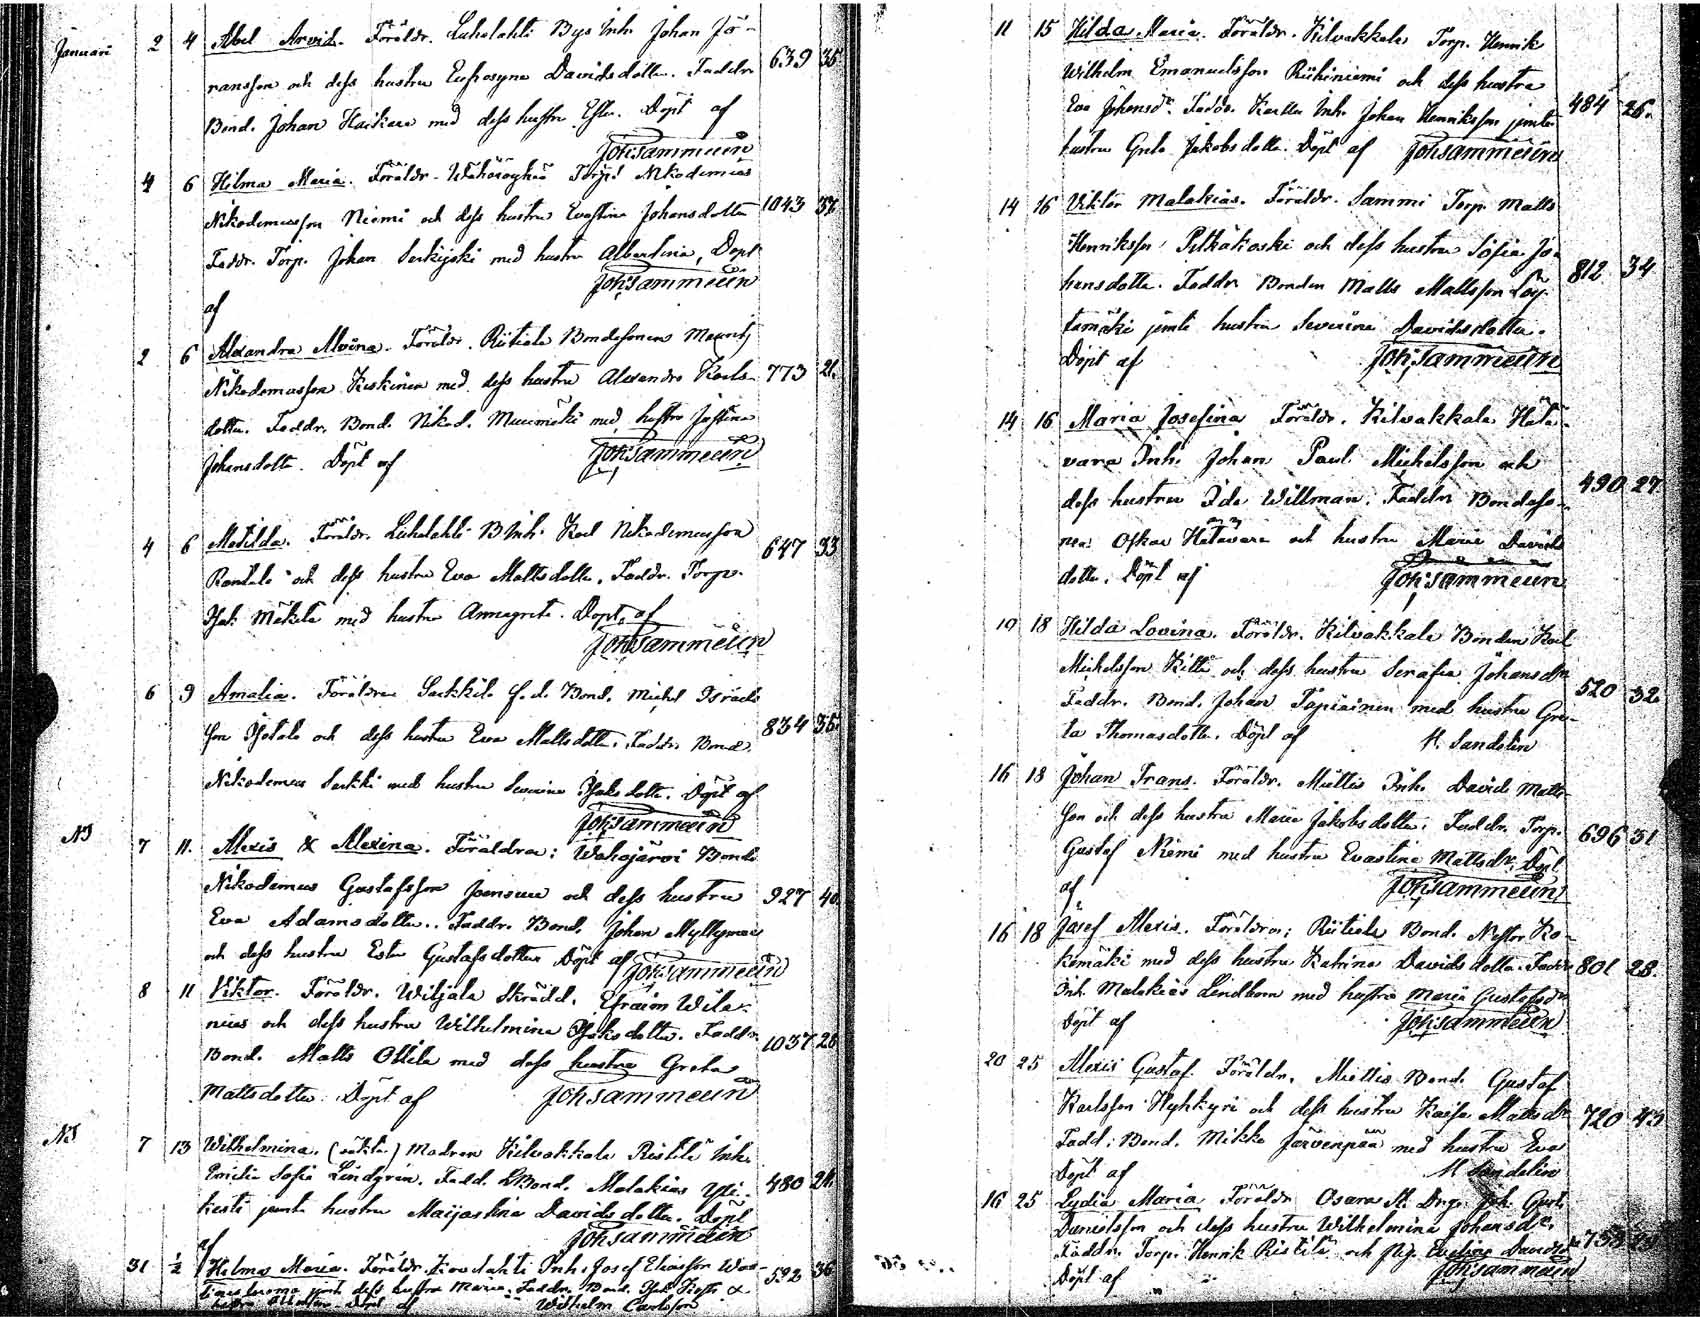 Januari 2 4 Abel Arvid. Föräldr. Luhalahti Bys Inh. Johan Jö- 639 35
ransson och dess hustru Eufrosyna Davidsdotter. Faddr.
Bond. Johan Haikara med dess hustru Ester. Döpt af
Joh. Sammeün
4 6 Hilma Maria. Föräldr. Torp. Nikodemus 1043 37.
Nikodemusson Niemi och dess hustru Evastina Johansdotter
Faddr. Torp. Johan med hustru Albertina, Döpt
Joh. Sammeün
af
2 6 Alexandra Alvina. Föräldr. Riitiala Bondesonen Maurits 773 21.
Nikodemusson Keskinen med dess hustru Alexandra Karls-
dotter. Faddr. Bond. Nikod. Muumäki med hustru Justina
Johansdotter. Döpt af Joh. Sammeün
4 6 Matilda. Föräldr. Luhalahti B. Inh. Karl Nikodemusson 647 33
Rantala och dess hustru Eva Mattsdotter. Faddr. Torp.
Isak Mäkelä med hustru Annagreta. Döpt af
Joh. Sammeün
6 9 Amalia. Föräldrar Sarkkila f.d. Bond. Michel Israels 834 35
son Isotalo och dess hustru Eva Mattsdotter. Faddr. Bond.
Nikodemus Sarkki med hustru Severina Isaksdotter. Döpt af
Joh. Sammeün
7 11. Alexis & Alexina. Föräldrar: Wahojärvi Bond.
Nikodemus Gustafsson Joensuu och dess hustru 927 40.
Eva Adamsdotter. Faddr. Bond. Johan Myllymäki
och dess hustru Ester Gustafsdotter Döpt af Joh. Sammeün
8 11 Viktor. Föräldr. Wiljala Skrädd. Efraim Wile-
nius och dess hustru Wilhelmina Isaksdotter. Faddr. 1037 28
Bond. Matts Ollila med dess hustru Greta
Mattsdotter. Döpt af Joh. Sammeün
7 13 Wilhelmina. (oäkta) Modren Kilvakkala Ristilä Inh.
Emilia Sofia Lindgrén. Fadd. Bond. Malakias Yli- 480 24.
kesti jemte hustru Maijastina Davidsdotter. Döpt
af Joh. Sammeün
31 1/2 Hilma Maria. Föräldr. Inh. Josef Eliasson 592 36
jemte dess hustru Maria. Faddr. Bond. Isak &
Döpt af Wilhelm Carlsson
11 15 Hilda Maria. Föräldr. Kilvakkala Torp. Henrik
Wilhelm Emanuelsson Riihiniemi och dess hustru
Eva Johansdr. Faddr. Inh. Johan Henriksson jemte 484 26.
hustru Greta Jakobsdotter. Döpt af Joh. Sammeün
14 16 Viktor Malakias. Föräldr. Sammi Torp. Matts
Henriksson Pitkäkoski och dess hustru Sofia Jo- 812 34
hansdotter. Faddr. Bonden Matts Mattsson Löy-
tämäki jemte hustru Severina Davidsdotter.
Döpt af Joh. Sammeün
14 16 Maria Josefina Föräldr. Kilvakkala Hata-
vara Inh. Johan Paul Michelsson och
dess hustru Ida Willman. Faddr. Bondeso- 490 27
nen Oskar Hatavara och hustru Maria Davids
dotter. Döpt af Joh. Sammeün
19 18 Hilda Lovina. Föräldr. Kilvakkala Bonden Karl
Michelsson Kittä och dess hustru Serafia Johansdr. 520 32
Faddr. Bond. Johan Tapiainen med hustru Gre-
ta Thomasdotter. Döpt af M. Sandelin
16 18 Johan Frans. Föräldr. Miettis Inh. David Matts-
son och dess hustru Maria Jakobsdotter. Faddr. Torp. 696 31
Gustaf Niemi med hustru Evastina Mattsdr. Döpt
af Joh. Sammeün
16 18 Josef Alexis. Föräldrar; Riitiala Bond. Nestor Ko-
komäki med dess hustru Katrina Davidsdotter. Faddr. 801 28.
Inh. Malakias Lindbom med hustru Maria Gustafsdr.
Döpt af Joh. Sammeün
20 25 Alexis Gustaf. Föräldr. Miettis Bond. Gustaf
Karlsson Hyhkyri och dess hustru Kaisa Mattsdr. 720 43
Fadd: Bond. Mikko Järvenpää med hustru Eva
Döpt af M Sandelin
16 25 Lydia Maria Föräldr. Osara Drg. Joh. Gust.
Danielsson och dess hustru Wilhelmina Johansdr.
Faddr. Torp. Henrik Ristilä och Pig. Evelina Davidsdr. 753
Döpt af Joh. Sammeün